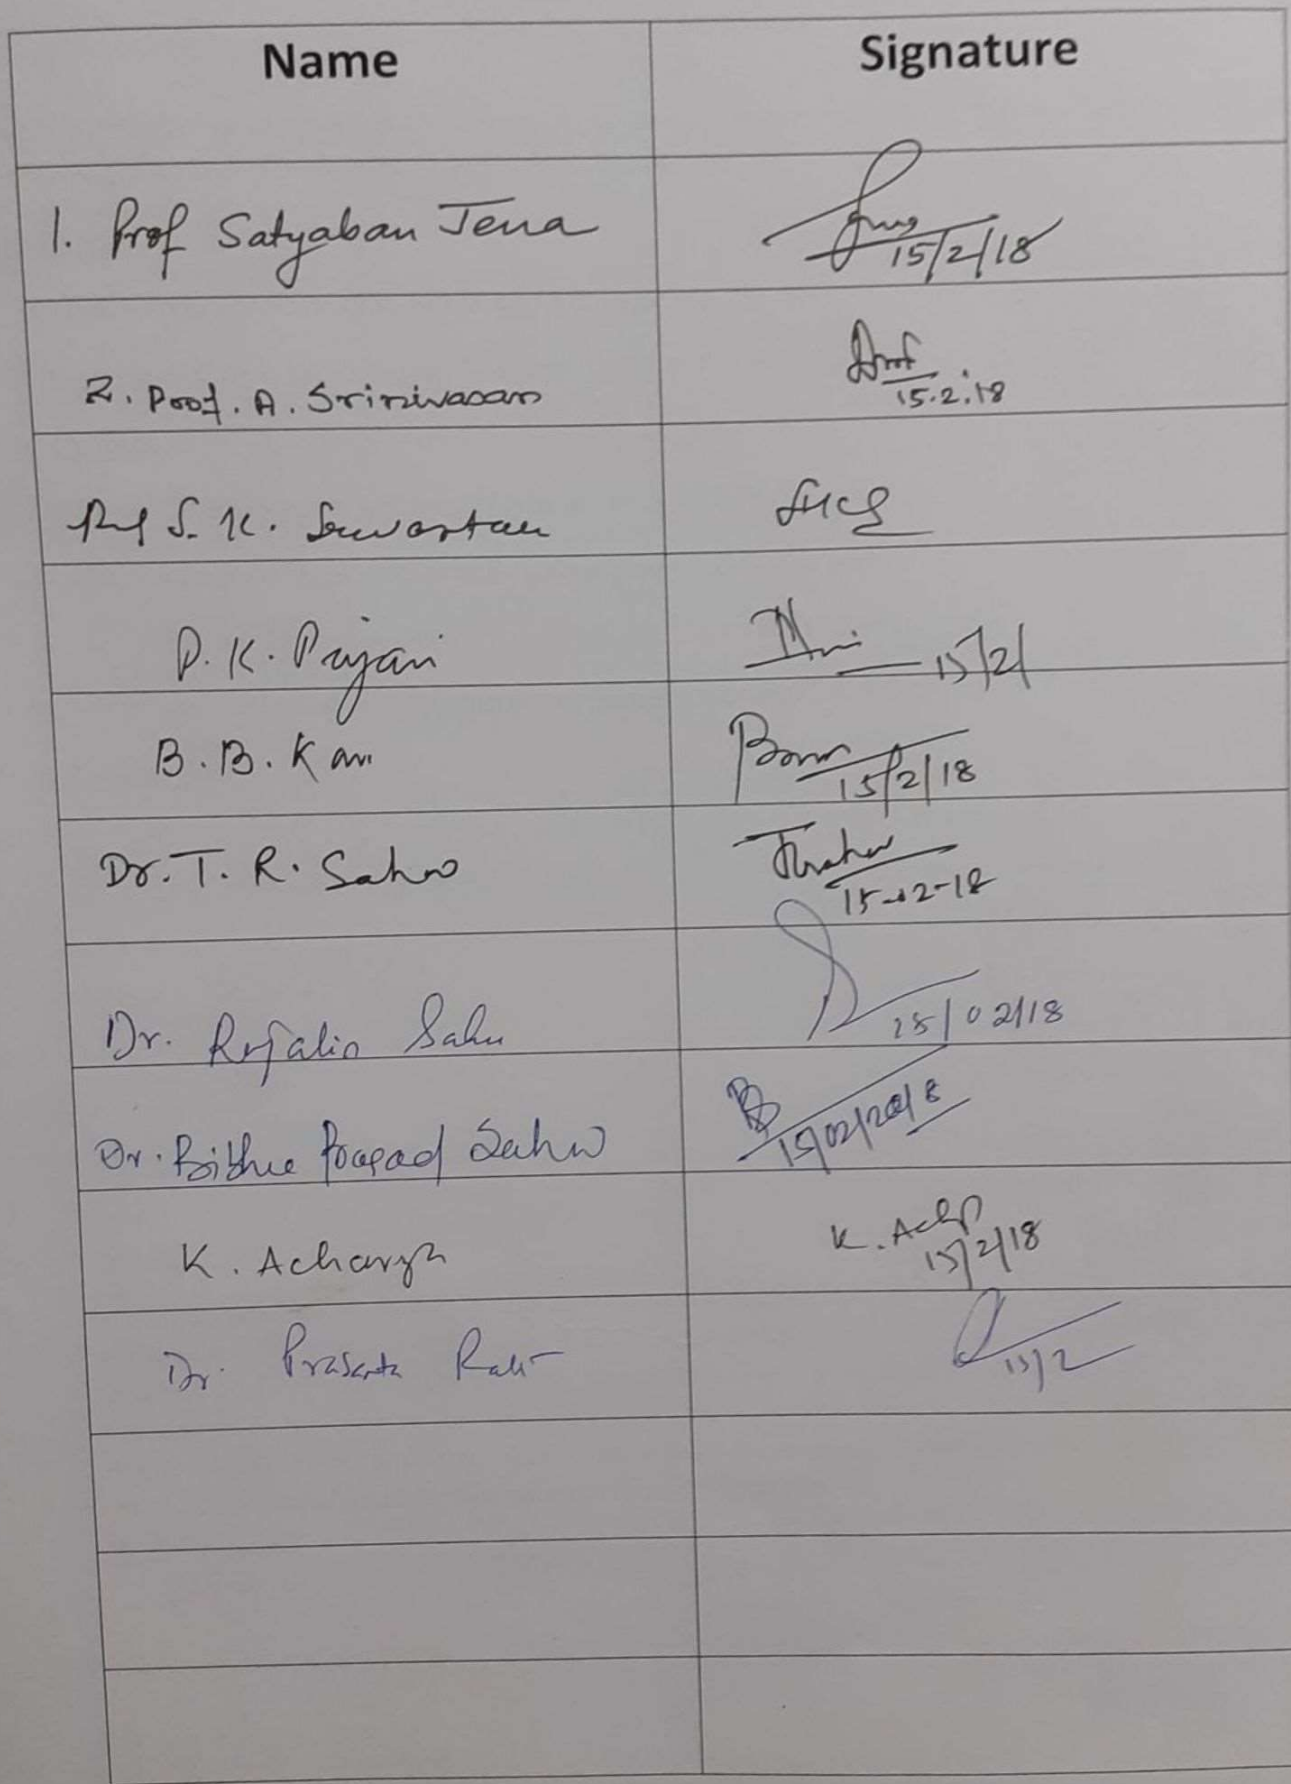 Name Signature
1. Prof Satyaban Jena
15/2/18
2. Prof. A. Srinivasan
15.2.18
Prof S. K.
P. K.
15/2/
B. B. Kar
15/2/18
Dr. T. R. Sahoo
15-02-18
Dr. Rojalin Sahu
15/02/18
Dr. Sahoo
15/02/2018
K. Acharya
K.
15/2/18
Dr. Prasanta Rath
15/2